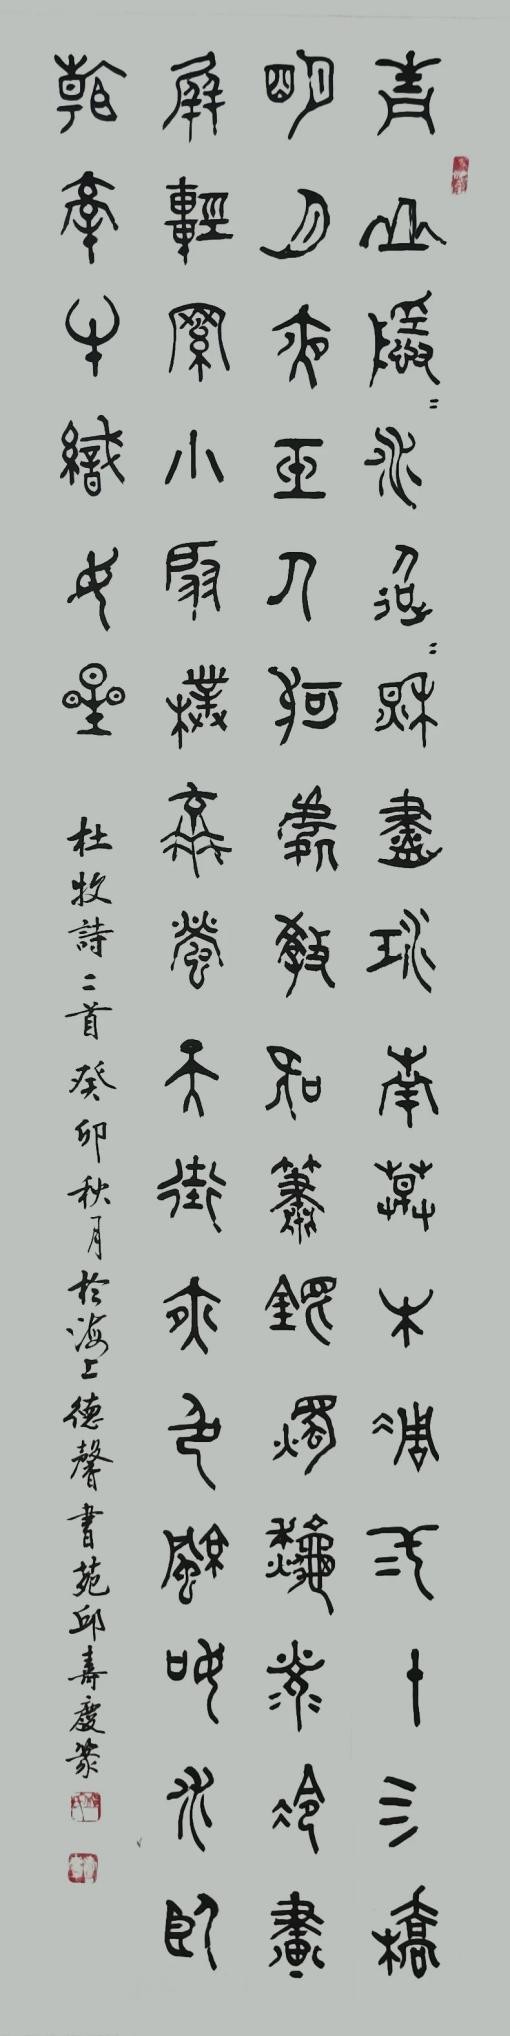 青山隱〻水迢〻秋盡江南草木凋二十四橋
明月夜玉人何處教吹簫銀燭秋光冷畫
屏輕羅小扇撲流螢天街夜色涼如水臥
看牽牛織女星
杜牧詩二首癸卯秋月於海上德馨書苑邱壽慶篆